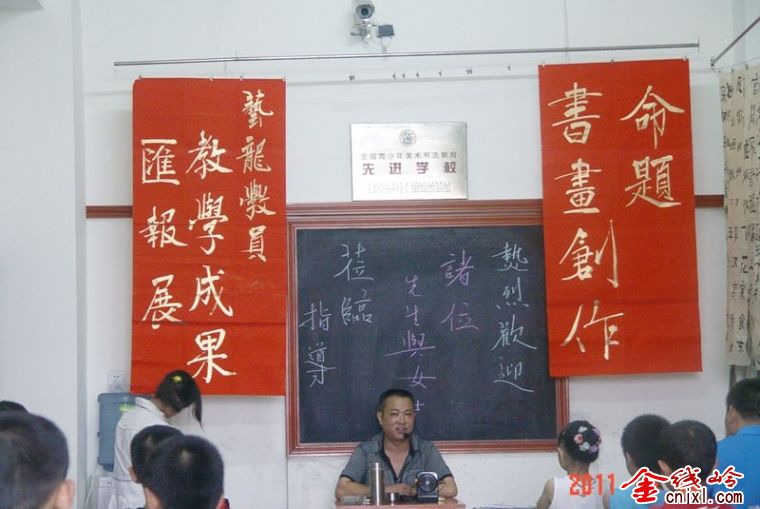 命題
書畫創作
全国青少年美术书法教育
先进学校
熱烈歡迎
諸位
先生與女士
莅臨
指導
藝龍學員
教學成果
匯報展
2011
金线岭
cnjxl.com